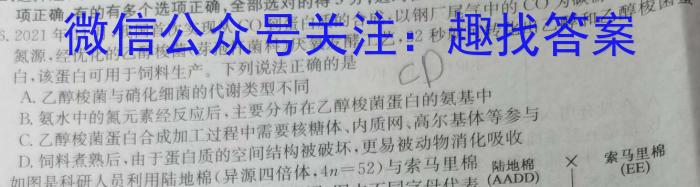 项正确,有的有多个选项正确,全部选对的得
6. 2021年 以钢厂尾气中的CO为
微信公众号关注:趣找答案
氮源,经优化的乙醇梭菌
白,该蛋白可用于饲料生产。下列说法正确的是
CD
A. 乙醇梭菌与硝化细菌的代谢类型不同
B. 氨水中的氮元素经反应后,主要分布在乙醇梭菌蛋白的氨基中
C. 乙醇梭菌蛋白合成加工过程中需要核糖体、内质网、高尔基体等参与
D. 饲料煮熟后,由于蛋白质的空间结构被破坏,更易被动物消化吸收
如图是科研人员利用陆地棉(异源四倍体,4n=52)与索马里棉
陆地棉 × 索马里棉
(AADD) (EE)
不同字母代表